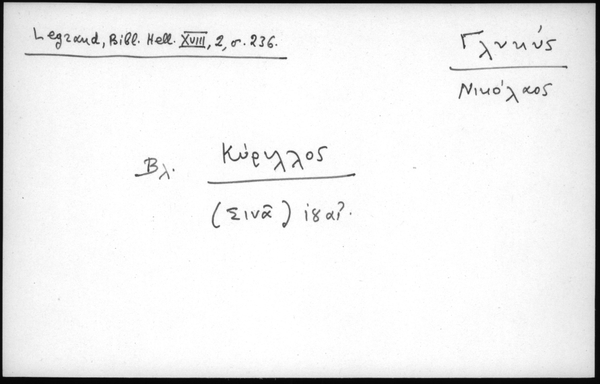 Legrand, Bibl. Hell. XVIII, 2, σ. 236.
Γλυκύς
Νικόλαος
Βλ. Κύριλλος
(Σινᾶ)